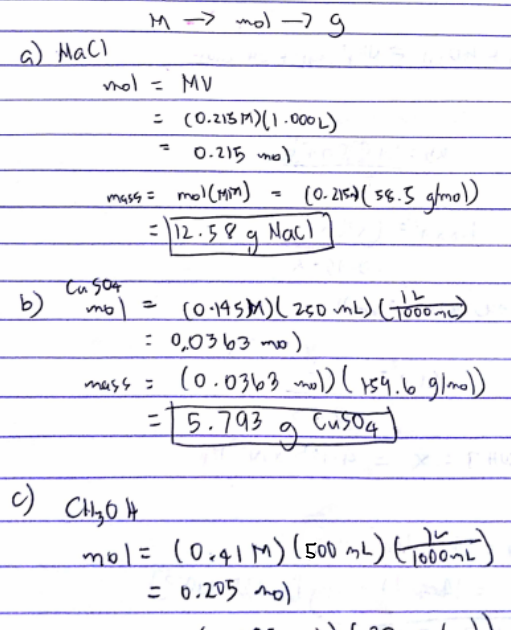 M → mol → g
a) NaCl
mol = MV
= (0.215M)(1.000L)
= 0.215 mol
mass = mol(MM) = (0.215)(58.5 g/mol)
= 12.58 g NaCl
b) CuSO4
mol = (0.145M)(250 mL)(1L/1000mL)
= 0,0363 mol
mass = (0.0363 mol)(159.6 g/mol)
= 5.793 g CuSO4
c) CH3OH
mol = (0.41M)(500 mL)(1L/1000mL)
= 0.205 mol